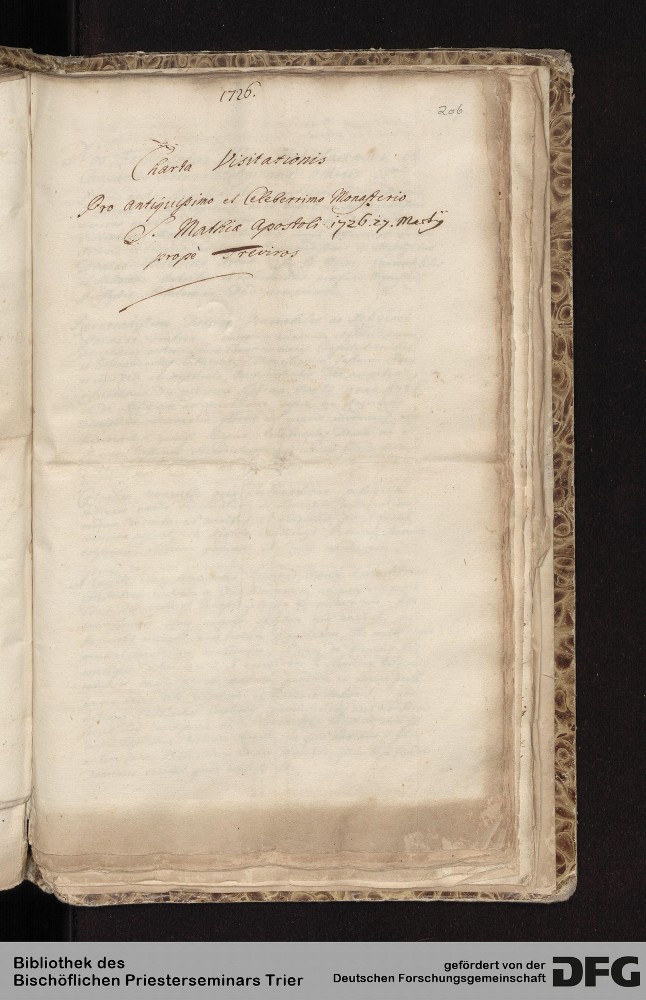 1726.
206
Charta Visitationis
Pro Antiquissimo et Celeberrimo Monasterio
S. Mathiæ Apostoli 1726 27. Martij
propè Treviros
Bibliothek des
Bischöflichen Priesterseminars Trier
gefördert von der
Deutschen Forschungsgemeinschaft
DFG